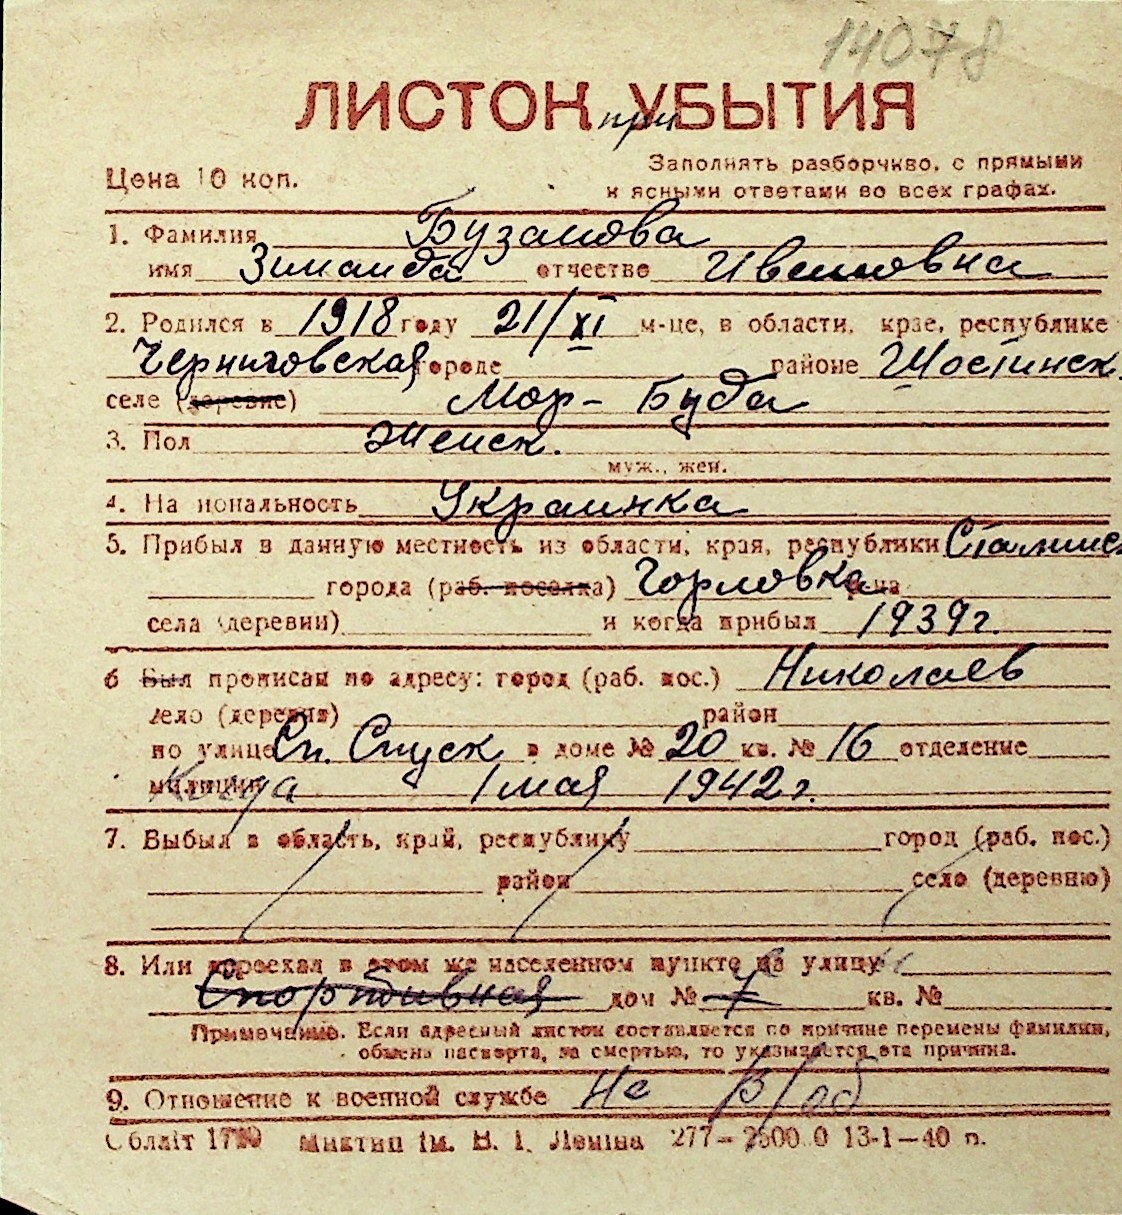 14078
ЛИСТОК при УБЫТИЯ
Цена 10 коп.
Заполнять разборчиво, с прямыми
и ясными ответами во всех графах.
1. Фамилия Бузанова
имя Зинаида отчество Ивановна
2. Родился в 1918 году 21/XI м-це, в области, крае, республике
Черниговская городе районе Шостинск.
селе (деревне) Мор-Буда
3. Пол Женск.
муж., жен.
4. Национальность Украинка
5. Прибыл в данную местность из области, края, республики Сталинск
города (раб. поселка) Горловка
села (деревни) и когда прибыл 1939г.
6 Был прописан по адресу: город (раб. пос.) Николаев
село (деревня) район
по улице Сп. Спуск в доме № 20 кв. № 16 отделение
милиции Когда 1 мая 1942г.
7. Выбыл в область, край, республику город (раб. пос.)
район село (деревню)
8. Или переехал в этом же населенном пункте на улицу
Спортивная дом № 7 кв. №
Примечание. Если адресный листок составляется по причине перемены фамилии,
обмена паспорта, за смертью, то указывается эта причина.
9. Отношение к военной службе Не в/об
Обліт 17 Миктип ім. В. І. Леніна 277—2500 0 13-1—40 п.